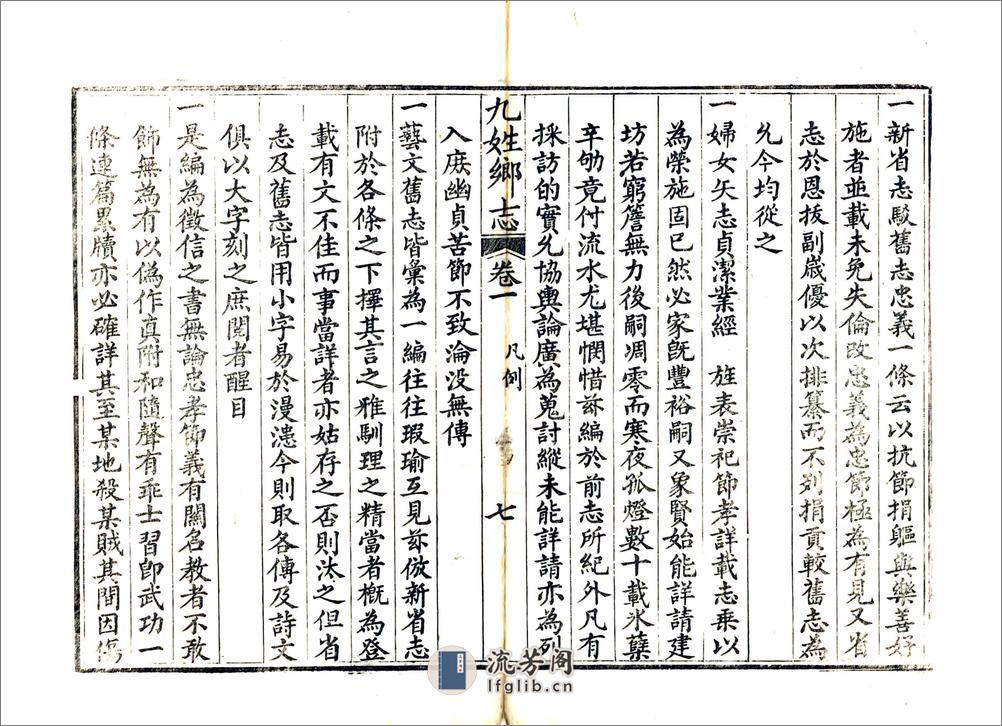 一新省志駁舊志忠義一條云以抗節捐軀與樂善好
施者並載未免失倫改忠義為忠節極為有見又省
志於恩拔副歲優以次排纂而不列捐貢較舊志為
允今均從之
一婦女矢志貞潔業經　旌表崇祀節孝詳載志乘以
為榮施固已然必家旣豐裕嗣又象賢始能詳請建
坊若窮簷無力後嗣凋零而寒夜孤燈數十載氷蘗
辛劬竟付流水尤堪憫惜茲編於前志所紀外凡有
採訪的實允協輿論廣為蒐討縱未能詳請亦為列
入庶幽貞苦節不致淪没無傳
九姓鄉志 卷一 凡例 七
一藝文舊志皆彙為一編往往瑕瑜互見茲倣新省志
附於各條之下擇其言之雅馴理之精當者概為登
載有文不佳而事當詳者亦姑存之否則汰之但省
志及舊志皆用小字易於漫漶今則取各傳及詩文
俱以大字刻之庶閱者醒目
一是編為徵信之書無論忠孝節義有關名教者不敢
飾無為有以偽作真附和隨聲有乖士習卽武功一
條連篇累牘亦必確詳其至某地殺某賊其間因傷
流芳阁
lfglib.cn